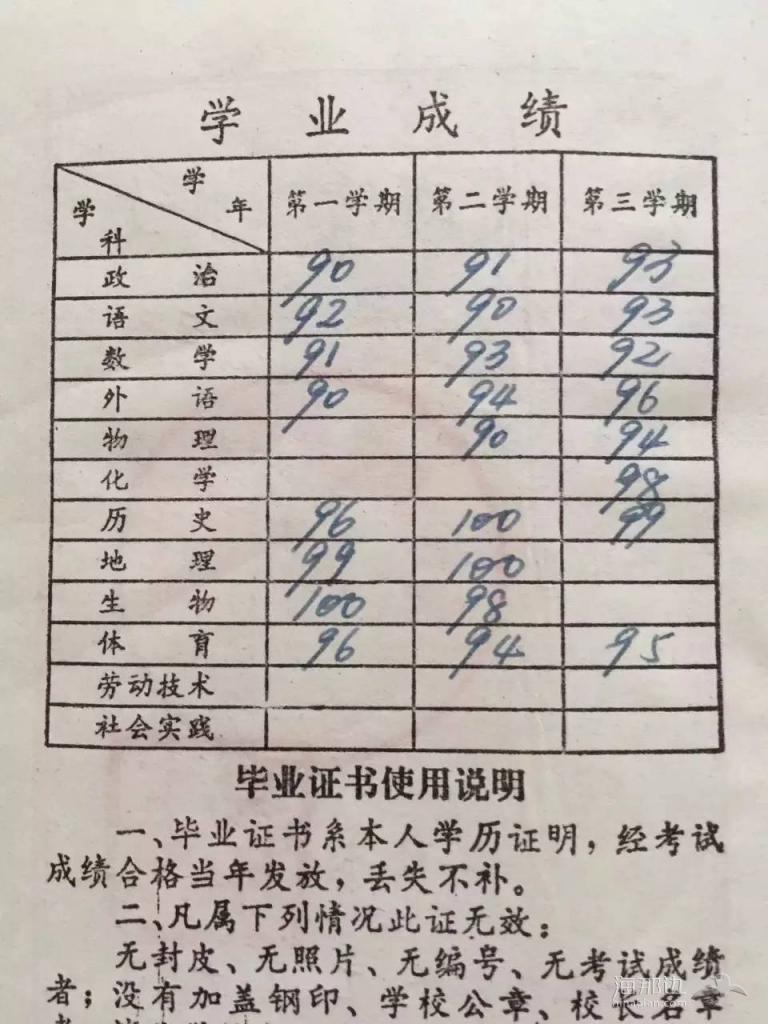 学业成绩
学年 学科 第一学期 第二学期 第三学期
政治 90 91 93
语文 92 90 93
数学 91 93 92
外语 90 94 96
物理 90 94
化学 98
历史 96 100 99
地理 99 100
生物 100 98
体育 96 94 95
劳动技术
社会实践
毕业证书使用说明
一、毕业证书系本人学历证明，经考试
成绩合格当年发放，丢失不补。
二、凡属下列情况此证无效：
无封皮、无照片、无编号、无考试成绩
者；没有加盖钢印、学校公章、校长名章
海那边